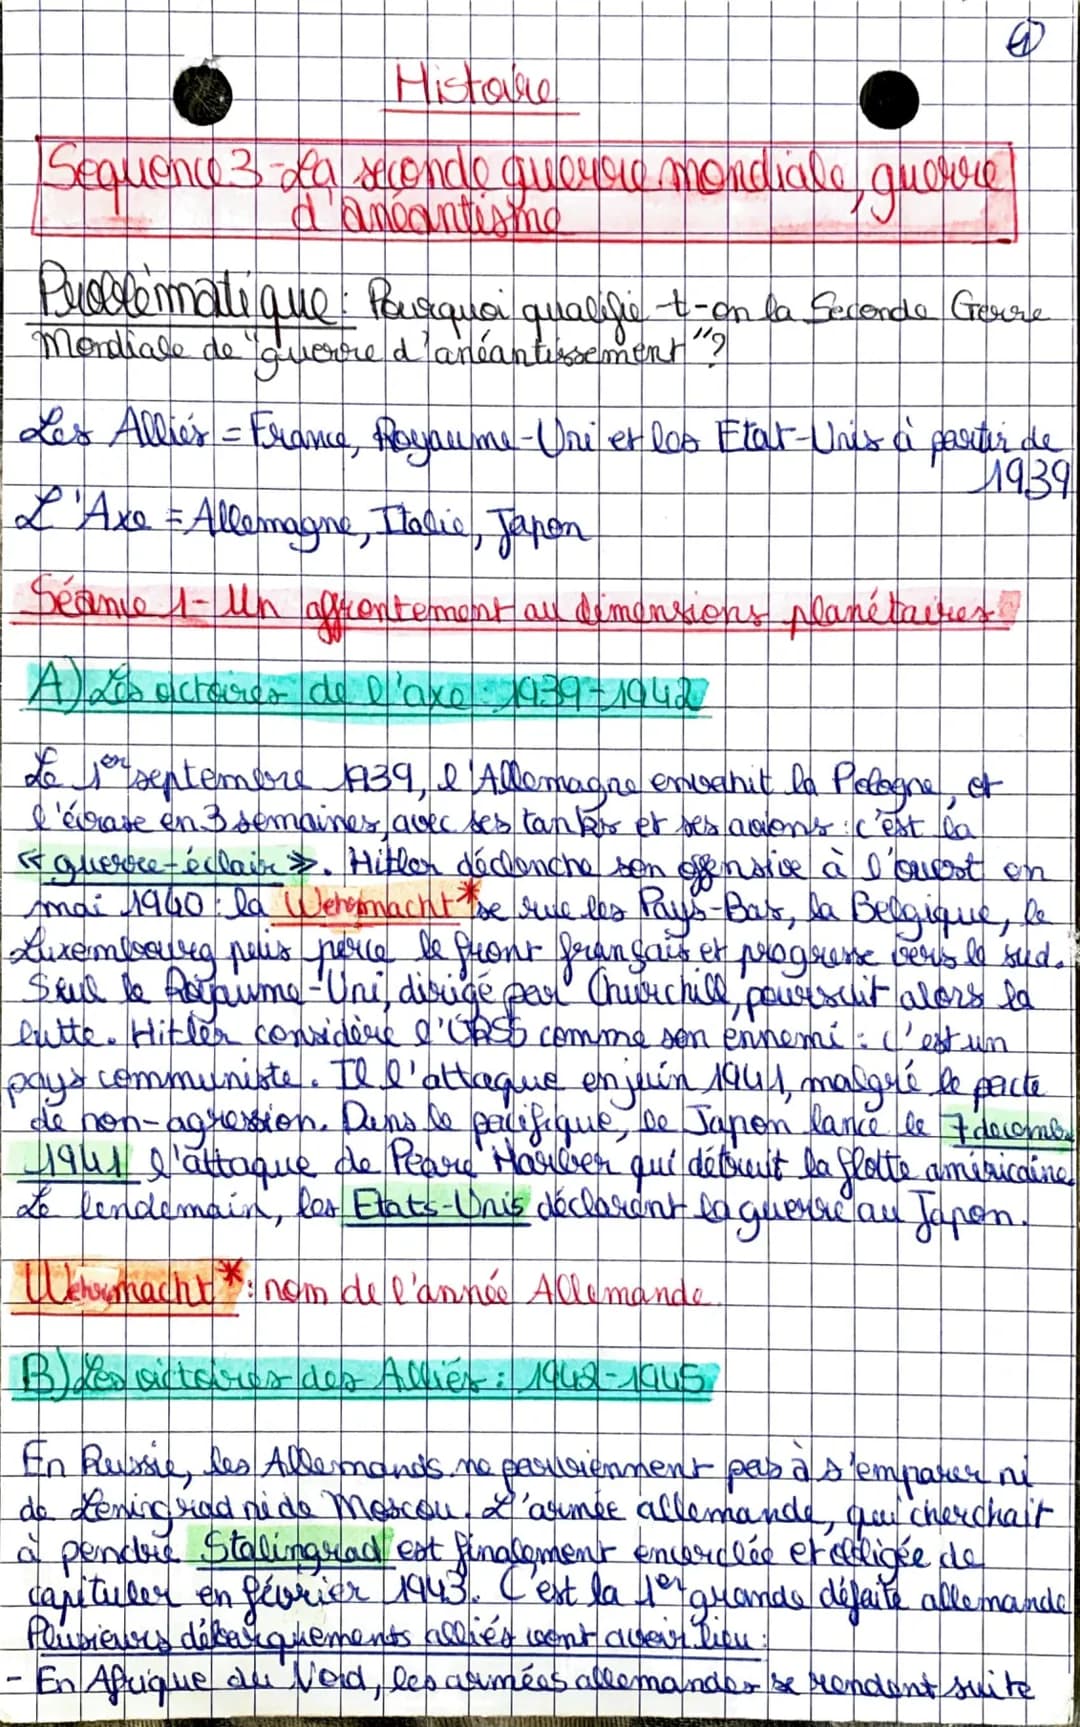 ①
Histoire
Séquence 3 - La seconde guerre mondiale, guerre
d'anéantisme
Problématique : Pourquoi qualifie-t-on la Seconde Gerre
Mondiale de "guerre d'anéantissement"?
Les Alliés = France, Royaume-Uni et les Etat-Unis à partir de
1939
L'Axe = Allemagne, Italie, Japon
Séance 1 - Un affrontement au dimensions planétaires
A) Les victoires de l'axe : 1939-1942
Le 1er septembre 1939, l'Allemagne envahit la Pologne, et
l'écrase en 3 semaines, avec ses tanks et ses avions : c'est la
« guerre-éclair ». Hitler déclenche son offensive à l'ouest en
mai 1940 : la Wehrmacht* se rue les Pays-Bas, la Belgique, le
Luxembourg puis perce le front français et progresse vers le sud.
Seul le Royaume-Uni, dirigé par Churchill, poursuit alors la
lutte. Hitler considère l'URSS comme son ennemi : c'est un
pays communiste. Il l'attaque en juin 1941, malgré le pacte
de non-agression. Dans le pacifique, le Japon lance le 7 decembre
1941 l'attaque de Pearl Harber qui détruit la flotte américaine.
Le lendemain, les Etats-Unis déclarent la guerre au Japon.
Wehrmacht* : nom de l'année Allemande
B) Les victoires des Alliés : 1942-1945
En Russie, les Allemands ne parviennent pas à s'emparer ni
de Leningrad ni de Moscou. L'armée allemande, qui cherchait
à pendre Stalingrad est finalement encerclée et obligée de
capituler en février 1943. C'est la 1er grande défaite allemande
Plusieurs débarquements alliés vont avoir lieu :
- En Afrique du Nord, les armées allemandes se rendent suite